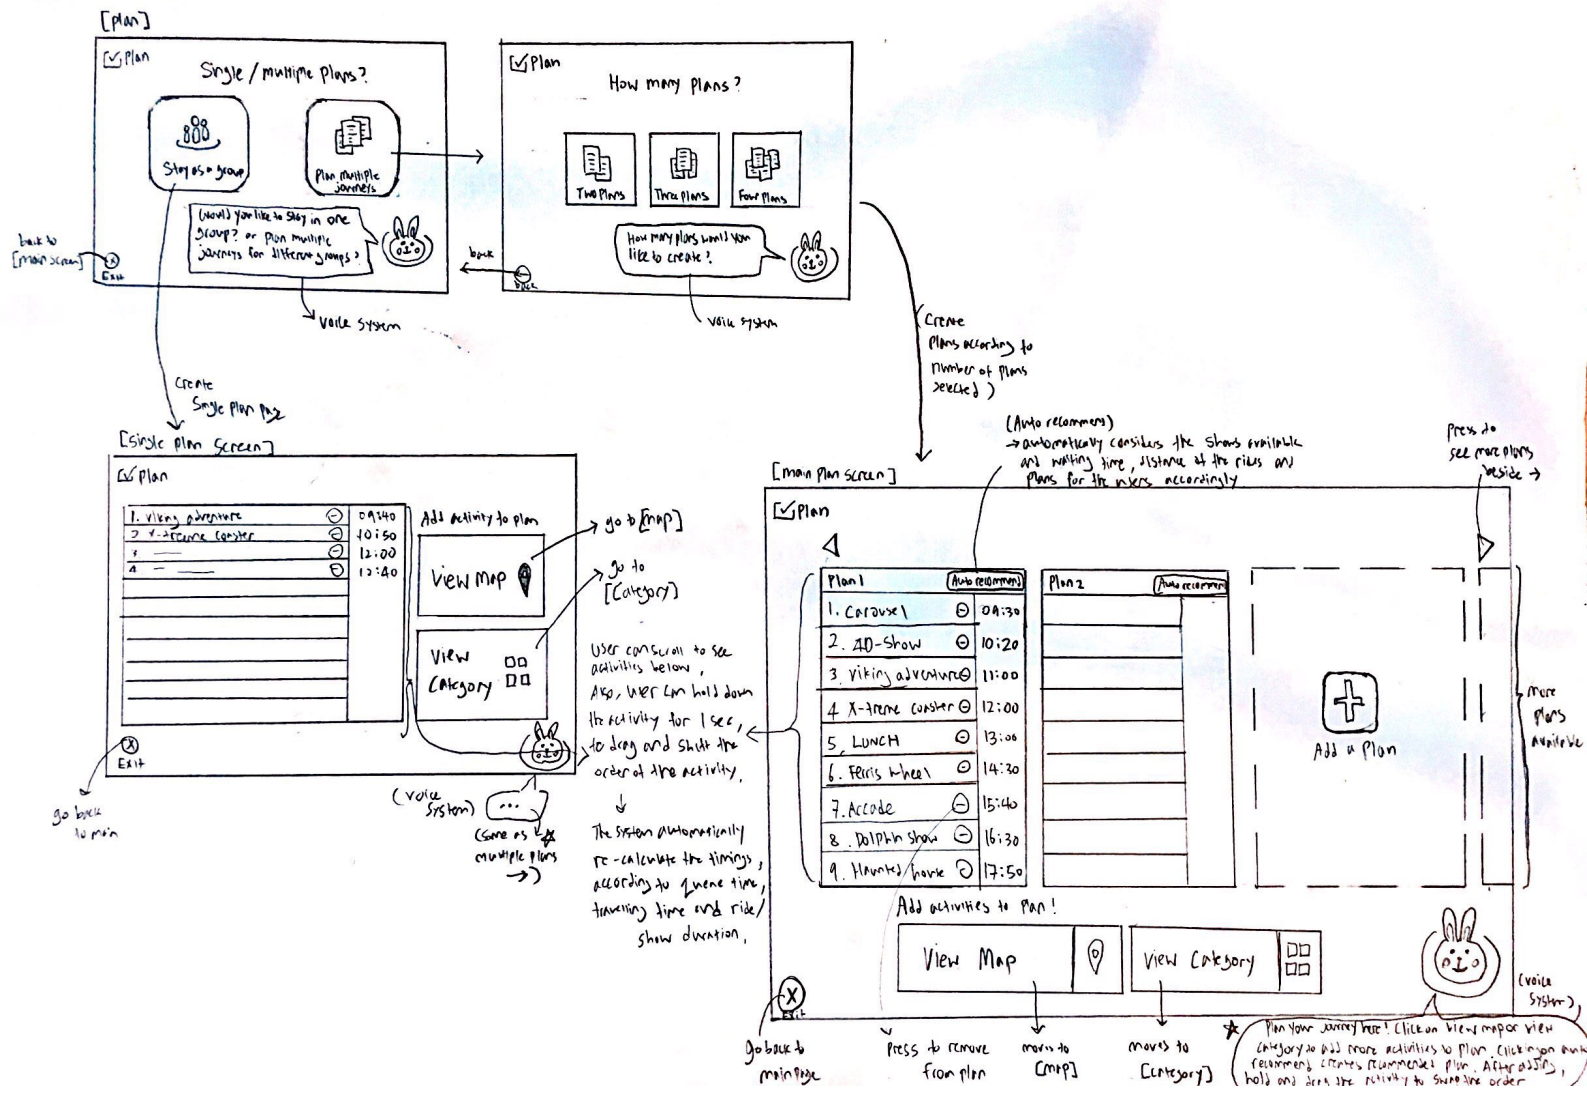 [plan]
Plan
Single / multiple plans?
Stay as a group
Plan multiple
journeys
Would you like to stay in one
group? or plan multiple
journeys for different groups?
back to
[main screen]
Exit
voice system
Plan
How many plans?
Two Plans
Three plans
Four plans
How many plans would you
like to create?
back
back
voice system
(Create
plans according to
number of plans
selected)
Create
Single plan page
[single plan screen]
Plan
1. Viking adventure 09:40
2 X-treme coaster 10:50
3 12:00
4. 12:40
Add activity to plan
View Map
View
Category
go to [map]
go to
[Category]
Exit
go back
to main
(voice
system)
...
(same as
multiple plans
→)
User can scroll to see
activities below.
Also, user can hold down
the activity for 1 sec,
to drag and shift the
order of the activity.
The system automatically
re-calculate the timings,
according to queue time,
travelling time and ride/
show duration.
(Auto recommend)
→ automatically considers the shows available
and waiting time, distance of the rides and
plans for the users accordingly
press to
see more plans
beside →
[main plan screen]
Plan
Plan 1 Auto recommend
1. Carousel 09:30
2. 4D-Show 10:20
3. Viking adventure 11:00
4 X-treme coaster 12:00
5. LUNCH 13:00
6. Ferris wheel 14:30
7. Arcade 15:40
8. Dolphin show 16:30
9. Haunted house 17:50
Plan 2 Auto recommend
Add a plan
more
plans
available
Add activities to plan!
View Map
View Category
Exit
go back to
main page
press to remove
from plan
moves to
[map]
moves to
[category]
(voice
system)
Plan your journey here! Click on view map or view
category to add more activities to plan. Clicking on auto
recommend creates recommended plan. After adding,
hold and drag the activity to swap the order